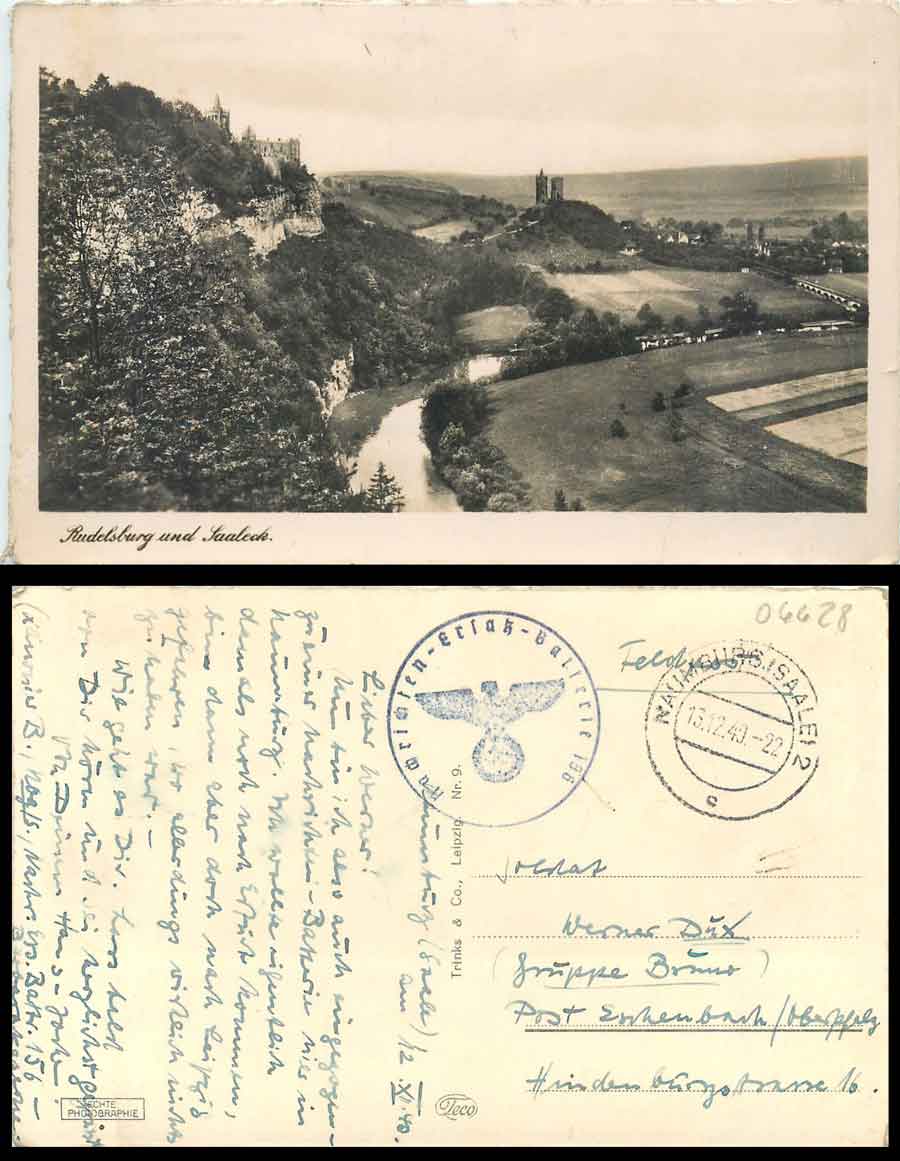 Rudelsburg und Saaleck.
06628
Feldpost
NAUMBURG (SAALE) 2
13.12.40.-22
c
Nachrichten-Ersatz-Batterie 156
Naumburg (Saale) 12. XII. 40.
den
Lieber Werner!
Nun bin ich also auch eingezogen
zu einer Nachrichten-Batterie hier in
Naumburg. Ich wollte eigentlich
damals noch nach Erfurt kommen,
bin dann aber doch nach Leipzig
gefahren, wo allerdings wirklich nichts
zu holen war. –
Wie geht es Dir. Lass bald
von Dir hören und sei herzlichst gegrüßt
von Deinem Hans-Joche
(Kanonier B., Nachr. Ers. Battr. 156 –
Trinks & Co., Leipzig. Nr. 9.
Soldat
Werner Dux
(Gruppe Bruno)
Post Eschenbach/Oberpfalz
Hindenburgstrasse 16.
ECHTE
PHOTOGRAPHIE
Teco